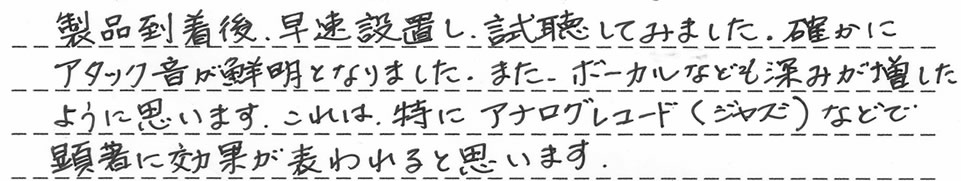 製品到着後、早速設置し、試聴してみました。確かに
アタック音が鮮明となりました。また、ボーカルなども深みが増した
ように思います。これは、特に アナログレコード(ジャズ)などで
顕著に効果が表われると思います.